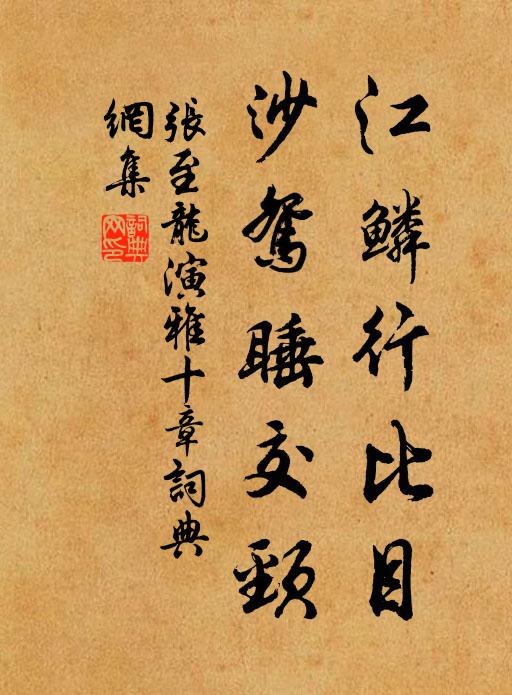 江鱗行比目
沙鴛睡交頸
張至龍演雅十章詞典
網集
詞典網印